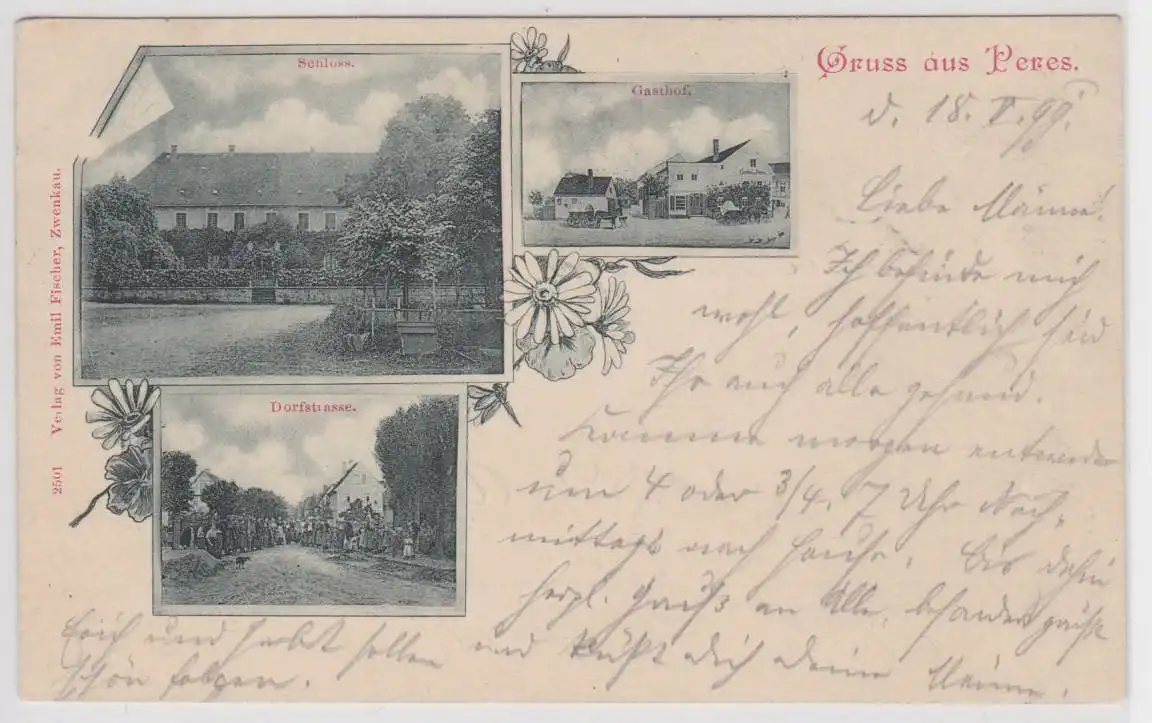 Gruss aus Peres.
Schloss.
Gasthof.
Dorfstrasse.
2501 Verlag von Emil Fischer, Zwenkau.
d. 18. V. 99.
Liebe
Ich befinde mich
wohl, hoffentlich seid
Ihr auch alle gesund.
Komme morgen entweder
um 4 oder 3/4 7 Uhr Nach-
mittags nach Hause. Bis dahin
herzl. Gruß an Alle, besonders grüßt
und küßt dich deine
Erich und sollen
schön folgen.